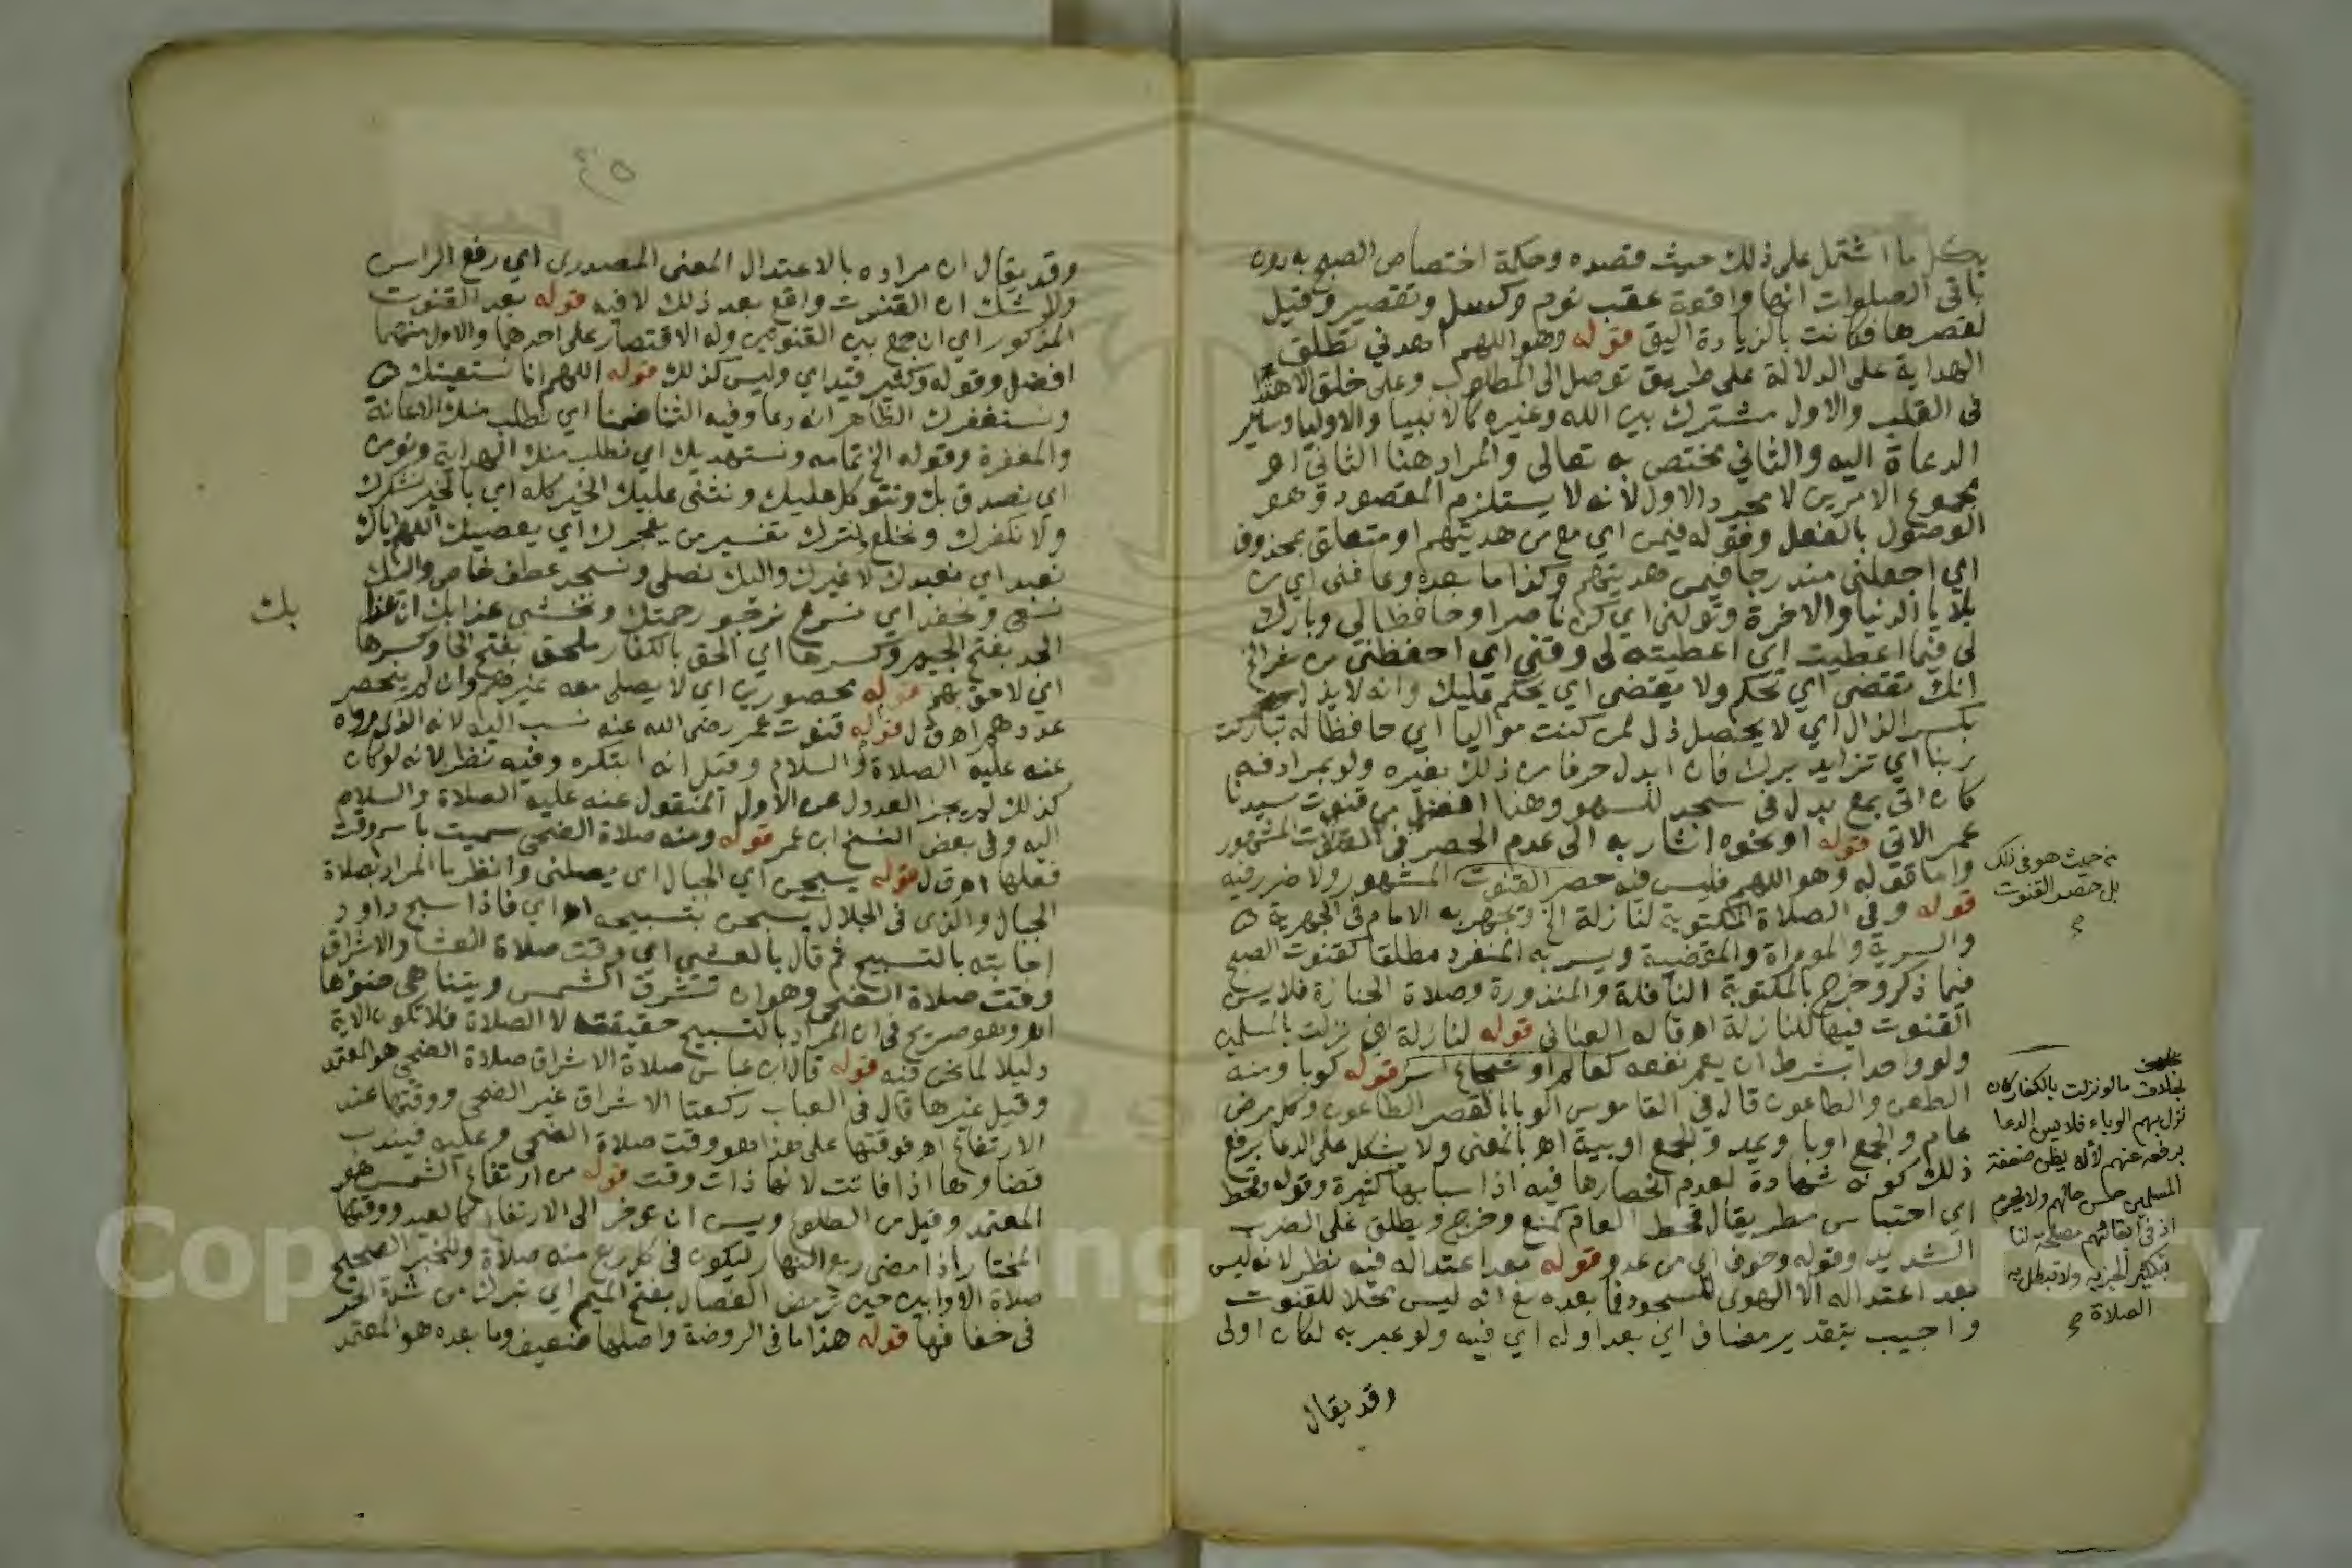 بكل ما اشتمل على ذلك حيث قصده وحكمة اختصاص الصبح به دون
باقي الصلوات انها واقعة عقب نوم وكسل وتقصير وقيل
لقصرها فكانت بالزيادة اليق قوله وهو اللهم اهدني تطلق
الهداية على الدلالة على طريق توصل الى المطلوب وعلى خلق الاهتدا
في القلب والاول مشترك بين الله وغيره كالانبيا والاوليا وساير
الدعاة اليه والثاني يختص به تعالى والمراد هنا الثاني اهـ
مجموع الامرين لا مجرد الاول لانه لا يستلزم المقصود وهو
الوصول بالفعل وقوله فيمن اي مع من هديتهم او متعلق بمحذوف
اي اجعلني مندرجا فيمن هديتهم وكذا ما بعده وعافني اي من
بلايا الدنيا والاخرة وتولني اي كن ناصرا وحافظا لي وبارك
لي فيما اعطيت اي اعطيته لي وقني اي احفظني من شر الخ
انك تقضي اي تحكم ولا يقضى اي يحكم عليك وانه لا يذل
بكسر الذال اي لا يحصل ذل لمن كنت مواليا اي حافظا له تباركت
ربنا اي تزايد برك فان ابدل حرفا من ذلك بغيره ولو بمرادفه
كان اتى بمع بدل في سجد للسهو وهذا افضل من قنوت سيدنا
عمر الاتي قوله او نحوه اشار به الى عدم الحصر في القنوت المشهور
واما قوله وهو اللهم فليس فيه حصر القنوت المشهور ولا ضرر فيه
من حيث هو في ذلك
بل حصر القنوت
قوله وفي الصلاة المكتوبة لنازلة الخ ويجهر به الامام في الجهرية
والسرية والموداة والمقضية ويسر به المنفرد مطلقا كقنوت الصبح
فيما ذكر وخرج بالمكتوبة النافلة والمنذورة وصلاة الجنازة فلا يسن
القنوت فيها للنازلة اهـ قاله العناني قوله لنازلة اي نزلت بالمسلمين
ولو واحدا بشرط ان يعم نفعه كعالم او شجاع اسر قوله كوبا ومنه
الطعن والطاعون قال في القاموس الوبا بالقصر الطاعون وكل مرض
عام والجمع اوبا ويمد والجمع اوبية اهـ بالمعنى ولا يشكل على الدعا برفع
ذلك كونه شهادة لعدم انحصارها فيه اذ اسبابها كثيرة وقوله وقحط
اي احتباس مطر يقال قحط العام كمنع وفرح ويطلق على الضرب
الشديد وقوله وخوف اي من عدو قوله بعد اعتداله فيه نظر لانه ليس
بعد اعتداله الا الهوي للسجود فما بعده مع انه ليس محلا للقنوت
واجيب بتقدير مضاف اي بعد اوله اي فيه ولو عبر به لكان اولى
بخلاف ما لو نزلت بالكفار كان
نزل بهم الوباء فلا يسن الدعا
برفعه عنهم لانه
اذ في بقائهم مصلحة لنا
بتكثير الجزية ولا تبطل به
الصلاة
وقد يقال
وقد يقال ان مراده بالاعتدال المعنى المصدري اي رفع الراس
ولا شك ان القنوت واقع بعد ذلك لا فيه قوله بعد القنوت
المذكور اي ان جمع بين القنوتين وله الاقتصار على احدهما والاول منهما
افضل وقوله وكغير قيد اي وليس كذلك قوله اللهم انا نستعينك
ونستغفرك الظاهر انه دعا وفيه الثنا ضمنا اي نطلب منك الاعانة
والمغفرة وقوله الخ تمامه ونستهديك اي نطلب منك الهداية ونومن
اي نصدق بك ونتوكل عليك ونثني عليك الخير كله اي بالخير نشكرك
ولا نكفرك ونخلع ونترك تفسير من يفجرك اي يعصيك اللهم اياك
نعبد اي نعبدك لا غيرك واليك نصلي ونسجد عطف خاص واليك
نسعى ونحفد اي نسرع نرجو رحمتك ونخشى عذابك ان عذا
بك
الجد بفتح الجيم وكسرها اي الحق بالكفار ملحق بفتح الحا وكسرها
اي لاحق بهم قوله محصورين اي لا يصلي معه غيرهم وان لم ينحصر
عددهم اهـ ق ل قوله قنوت عمر رضي الله عنه نسب اليه لانه الذي رواه
عنه عليه الصلاة والسلام وقيل انه ابتكره وفيه نظر لانه لو كان
كذلك لم يجز العدول عن الاول المنقول عنه عليه الصلاة والسلام
اليه وفي بعض النسخ ابن عمر قوله ومنه صلاة الضحى سميت باسم وقت
فعلها اهـ ق ل قوله يسبحن اي الجبال اي يصلين وانظر ما المراد بصلاة
الجبال والذي في الجلال يسبحن بتسبيحه اهـ اي فاذا سبح داود
اجابته بالتسبيح ثم قال بالعشي اي وقت صلاة العشا والاشراق
وقت صلاة الضحى وهو ان تشرق الشمس ويتناهى ضوؤها
اهـ وهو صريح في ان المراد بالتسبيح حقيقته لا الصلاة فلا تكون الاية
دليلا لما نحن فيه قوله قال ابن عباس صلاة الاشراق صلاة الضحى هو المعتمد
وقيل غيرها قال في العباب ركعتا الاشراق غير الضحى ووقتها عند
الارتفاع اهـ فوقتها على هذا هو وقت صلاة الضحى وعليه فيندب
قضاوها اذا فاتت لانها ذات وقت قوله من ارتفاع الشمس هو
المعتمد وقيل من الطلوع ويسن ان توخر الى الارتفاع كالعيد ووقتها
المختار اذا مضى ربع النهار ليكون في كل ربع منه صلاة وللخبر الصحيح
صلاة الاوابين حين ترمض الفصال بفتح الميم اي تبرك من شدة الحر
في خفافها قوله هذا ما في الروضة واصلها ضعيف وما بعده هو المعتمد